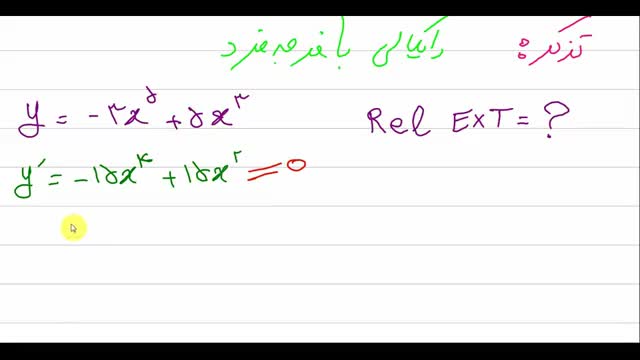 تذکر: رادیکالی با فرجه فرد
y = -۳x^۵ + ۵x^۳ Rel EXT = ?
y′ = -۱۵x^۴ + ۱۵x^۲ = 0